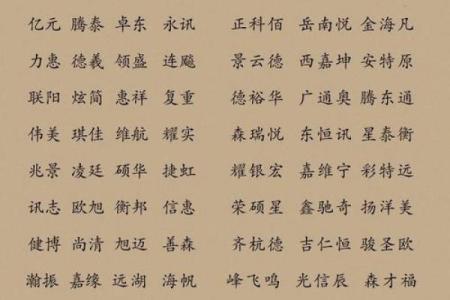 亿元 腾泰 卓东 永讯 正科佰 岳南悦 金海凡
力惠 德義 领盛 连飚 景云德 西嘉坤 安特原
联阳 炫简 惠祥 复重 德裕华 广通奥 腾东通
伟美 琪佳 维航 耀实 森瑞悦 东恒讯 星泰衡
兆景 凌廷 硕华 捷虹 耀银宏 嘉维宁 彩特远
讯志 欧旭 衡邦 信惠 荣硕星 鑫驰奇 扬洋美
健博 尚清 旭迈 善森 齐杭德 吉仁恒 骏圣欧
瀚振 嘉缘 远湖 海帆 峰飞鸣 光信辰 森才福